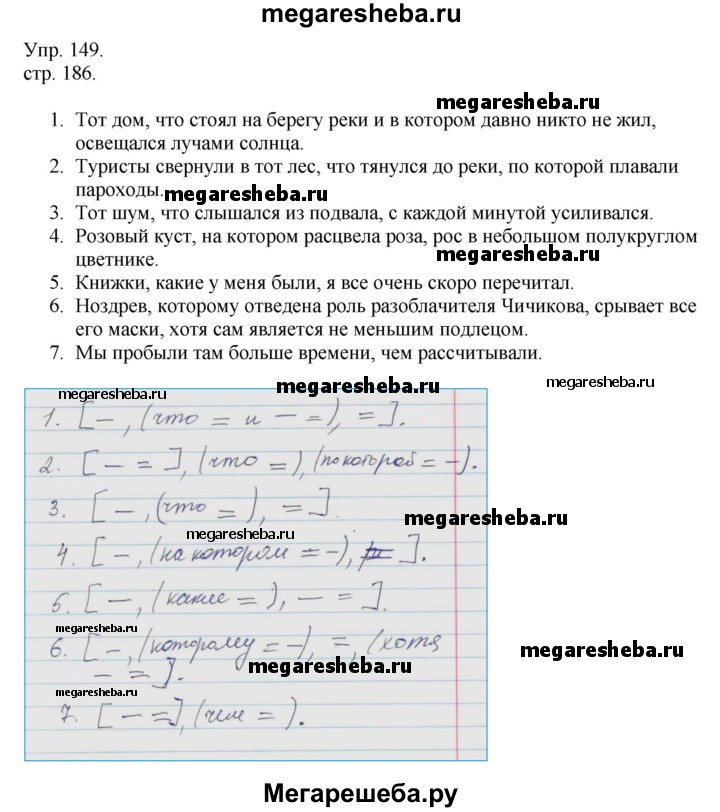 megaresheba.ru
Упр. 149.
стр. 186.
megaresheba.ru
1. Тот дом, что стоял на берегу реки и в котором давно никто не жил,
освещался лучами солнца.
2. Туристы свернули в тот лес, что тянулся до реки, по которой плавали
пароходы.
megaresheba.ru
3. Тот шум, что слышался из подвала, с каждой минутой усиливался.
4. Розовый куст, на котором расцвела роза, рос в небольшом полукруглом
цветнике.
megaresheba.ru
5. Книжки, какие у меня были, я все очень скоро перечитал.
6. Ноздрев, которому отведена роль разоблачителя Чичикова, срывает все
его маски, хотя сам является не меньшим подлецом.
7. Мы пробыли там больше времени, чем рассчитывали.
megaresheba.ru
megaresheba.ru
megaresheba.ru
1. [ – , (что = и – =), = ].
2. [ – = ], (что =), (по которой = –).
3. [ – , (что = ), = ].
megaresheba.ru
megaresheba.ru
4. [ – , (на котором = –), = ].
5. [ – , (какие = ), – = ].
megaresheba.ru
6. [ – , (которому = –), = , (хотя
– = ].
megaresheba.ru
megaresheba.ru
megaresheba.ru
7. [ – = ], (чем = ).
Мегарешеба.ру